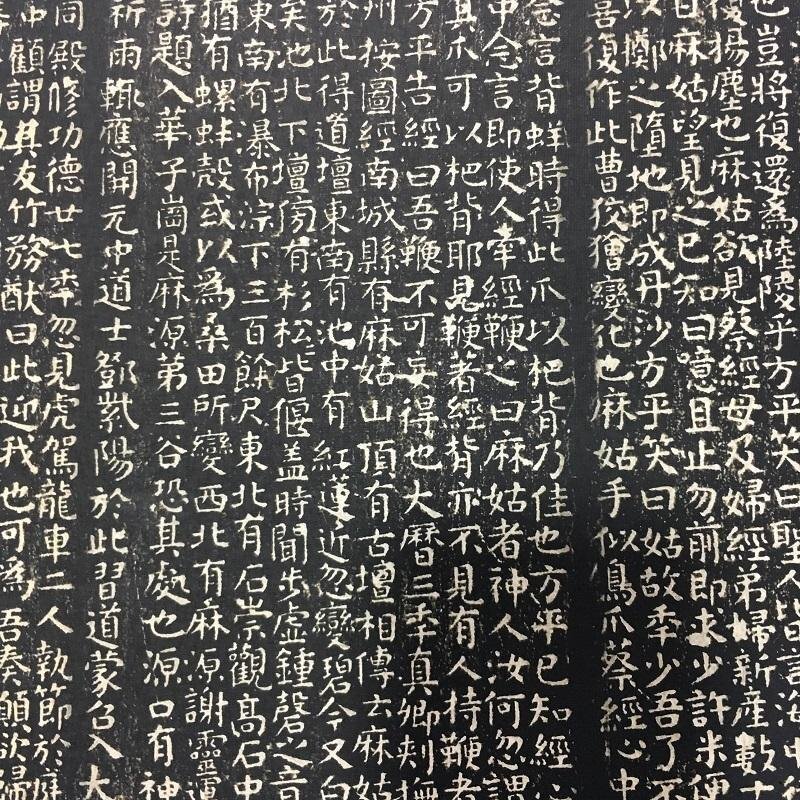 也豈將復還為陸陵乎方平笑曰聖人皆言海中
復揚塵也麻姑欲見蔡經母及婦經弟婦新產數十
日麻姑望見之已知曰噫且止勿前即求少許米便
以擲之墮地即成丹沙方平笑曰姑故年少吾了不
喜復作此曹狡獪變化也麻姑手似鳥爪蔡經心中
念言背蛘時得此爪以杷背乃佳也方平已知經心
中念言即使人牽經鞭之曰麻姑者神人汝何忽謂
其爪可以杷背耶見鞭著經背亦不見有人持鞭者
方平告經曰吾鞭不可妄得也大曆三年真卿刺撫
州按圖經南城縣有麻姑山頂有古壇相傳云麻姑
於此得道壇東南有池中有紅蓮近忽變碧今又白
矣池北下壇傍有杉松皆偃蓋時聞步虛鍾磬之音
東南有瀑布淙下三百餘尺東北有石崇觀高石中
猶有螺蚌殼或以為桑田所變西北有麻源謝靈運
詩題入華子崗是麻源第三谷恐其處也源口有神
祈雨輒應開元中道士鄧紫陽於此習道蒙召入大
同殿修功德廿七年忽見虎駕龍車二人執節於庭
中顧謂其友竹務猷曰此迎我也可為吾奏願欲歸